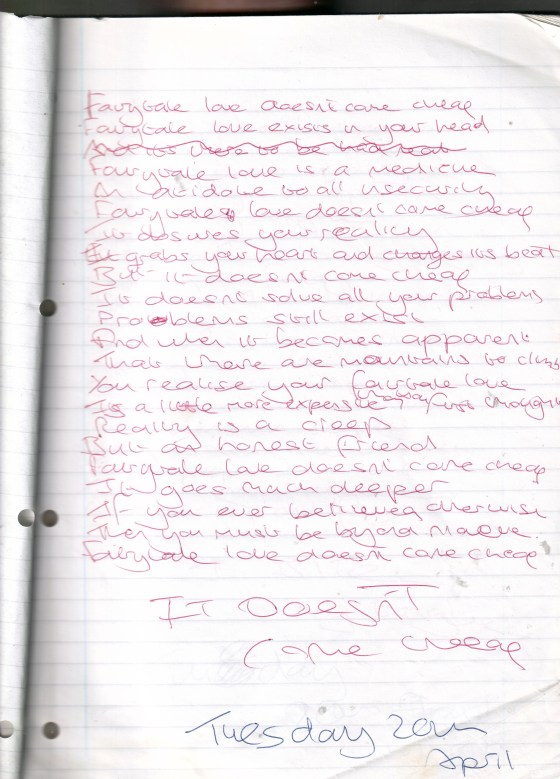 Fairytale love doesnt come cheap
Fairytale love exists in your head
And its there to be had
Fairytale love is a medicine
An antidote to all insecurity
Fairytales love doesnt come cheap
It obscures your reality
It grabs your heart and changes its beat
But it doesnt come cheap
It doesnt solve all your problems
Problems still exist
And when it becomes apparent
That there are mountains to climb
You realise your fairytale love
Is a little more expensive than you first thought
Reality is a creep
But an honest friend
Fairytale love doesnt come cheap
It goes much deeper
If you ever believed otherwise
Then you must be beyond naive.
Fairytale love doesnt come cheap
It Doesn't
Come cheap
Tuesday 20th
April